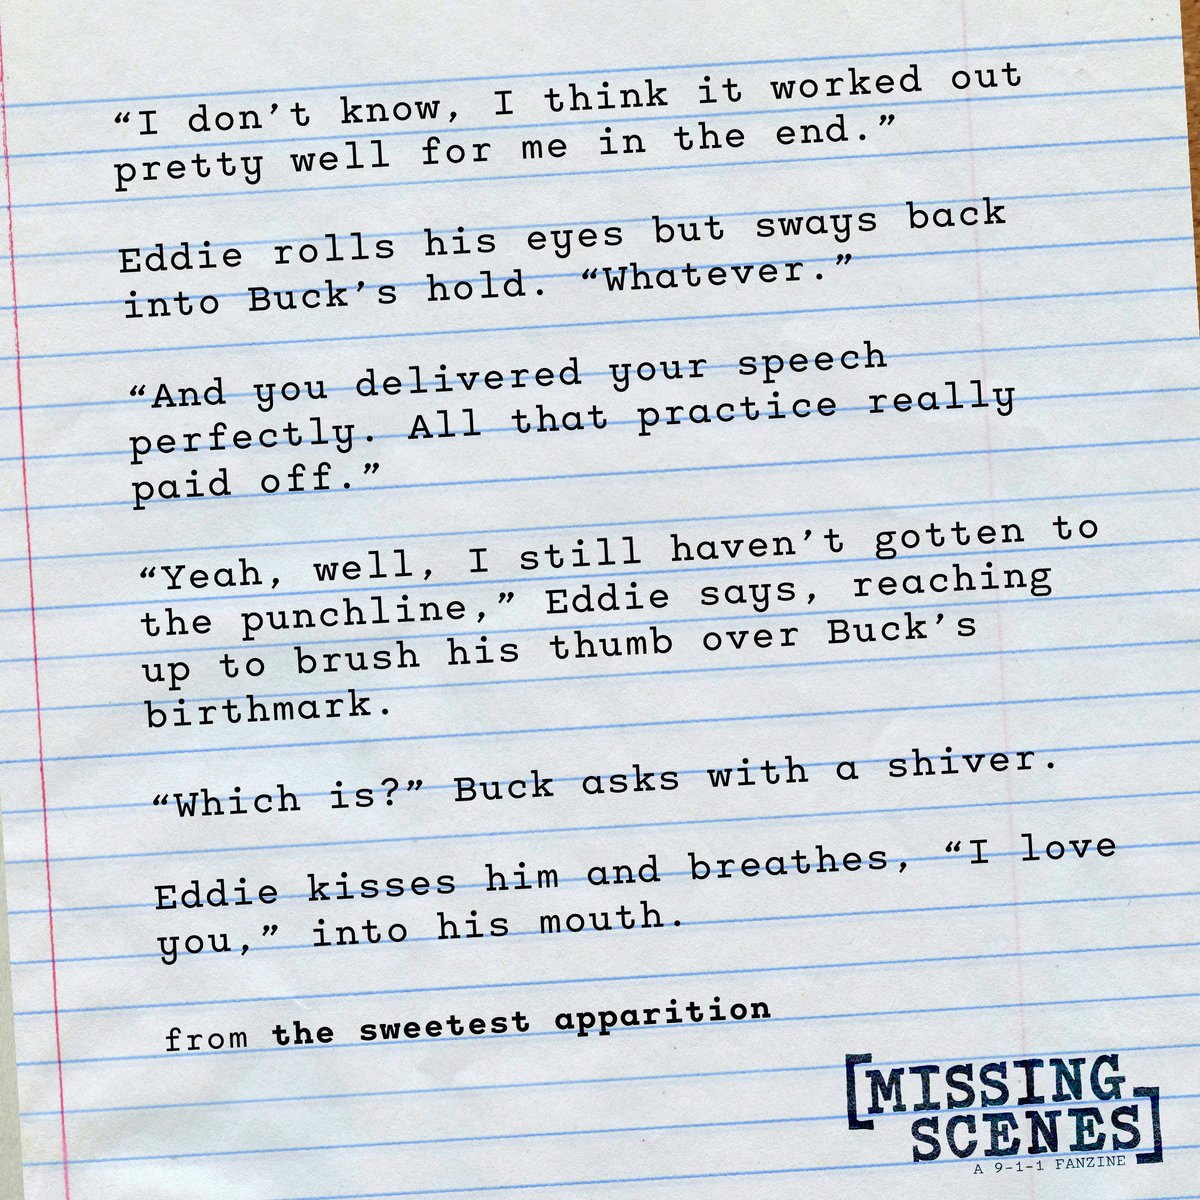 “I don’t know, I think it worked out
pretty well for me in the end.”
Eddie rolls his eyes but sways back
into Buck’s hold. “Whatever.”
“And you delivered your speech
perfectly. All that practice really
paid off.”
“Yeah, well, I still haven’t gotten to
the punchline,” Eddie says, reaching
up to brush his thumb over Buck’s
birthmark.
“Which is?” Buck asks with a shiver.
Eddie kisses him and breathes, “I love
you,” into his mouth.
from the sweetest apparition
[MISSING
SCENES]
A 9-1-1 FANZINE